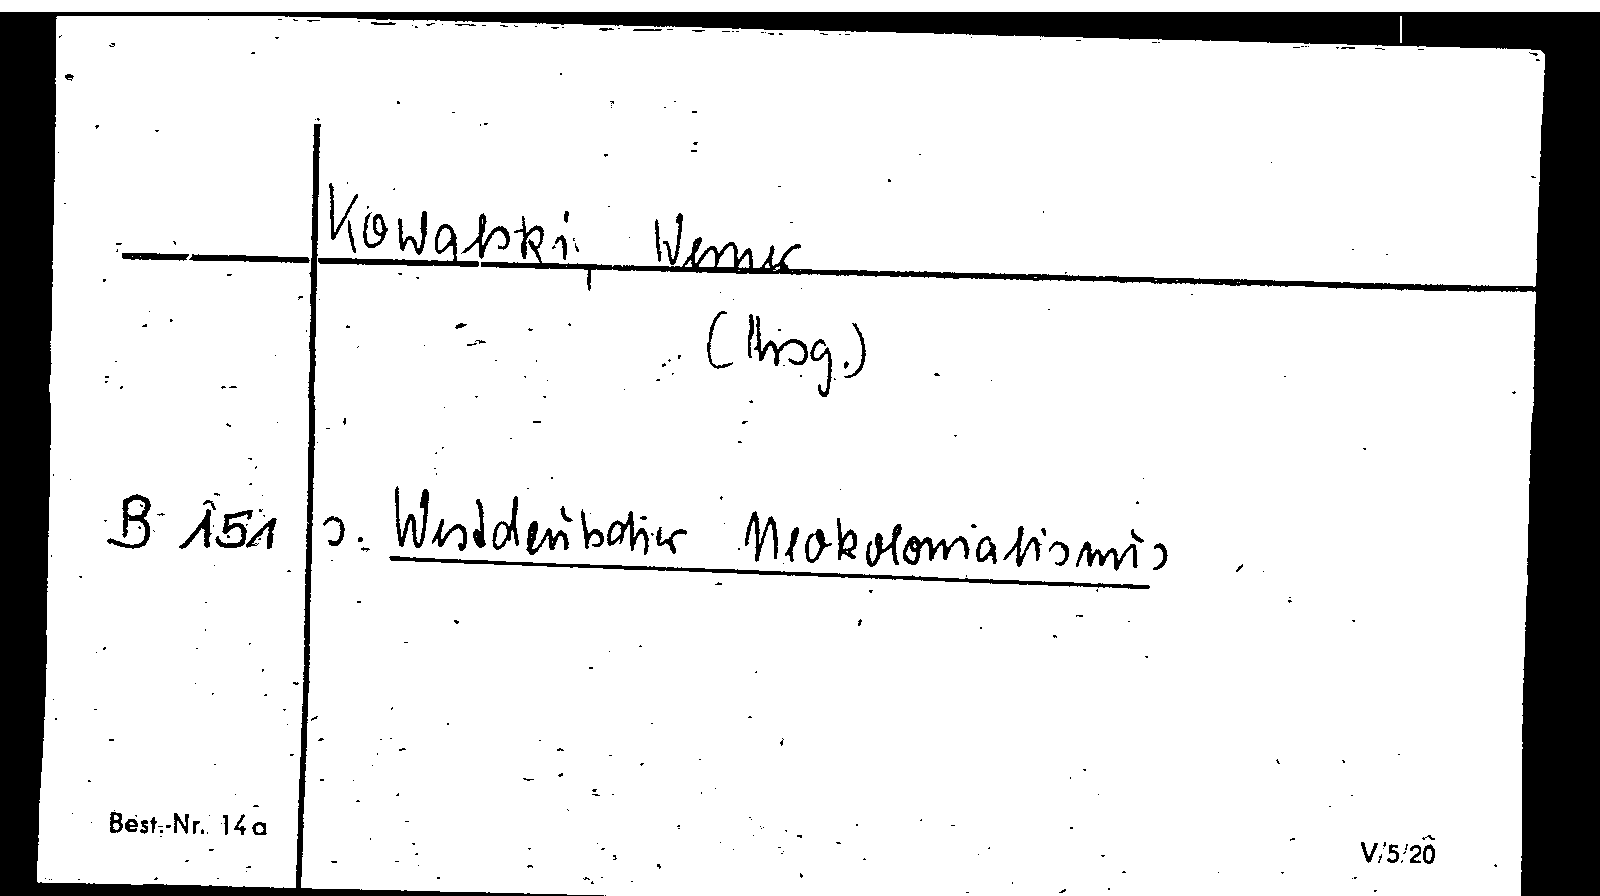 Kowalski, Werner
(Hrsg.)
B 151 s. Westdeutscher Neokolonialismus
Best.-Nr. 14a
V/5/20